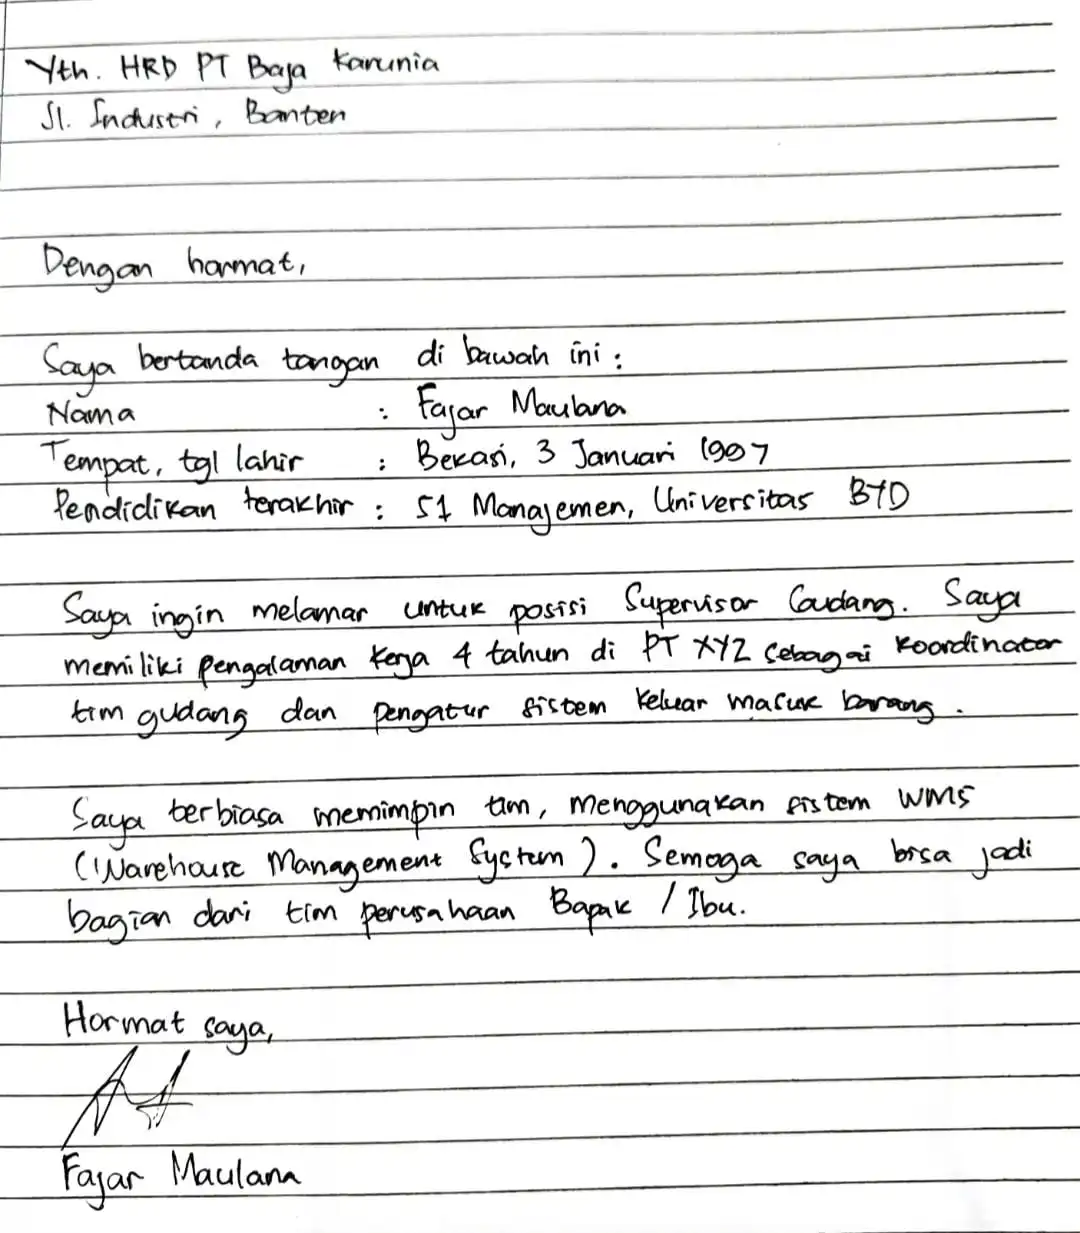 Yth. HRD PT Baja Karunia
Jl. Industri, Banten
Dengan hormat,
Saya bertanda tangan di bawah ini :
Nama : Fajar Maulana
Tempat, tgl lahir : Bekasi, 3 Januari 1997
Pendidikan terakhir : S1 Manajemen, Universitas BTD
Saya ingin melamar untuk posisi Supervisor Gudang. Saya
memiliki pengalaman kerja 4 tahun di PT XYZ sebagai koordinator
tim gudang dan pengatur sistem keluar masuk barang.
Saya terbiasa memimpin tim, menggunakan sistem WMS
(Warehouse Management System). Semoga saya bisa jadi
bagian dari tim perusahaan Bapak / Ibu.
Hormat saya,
Fajar Maulana